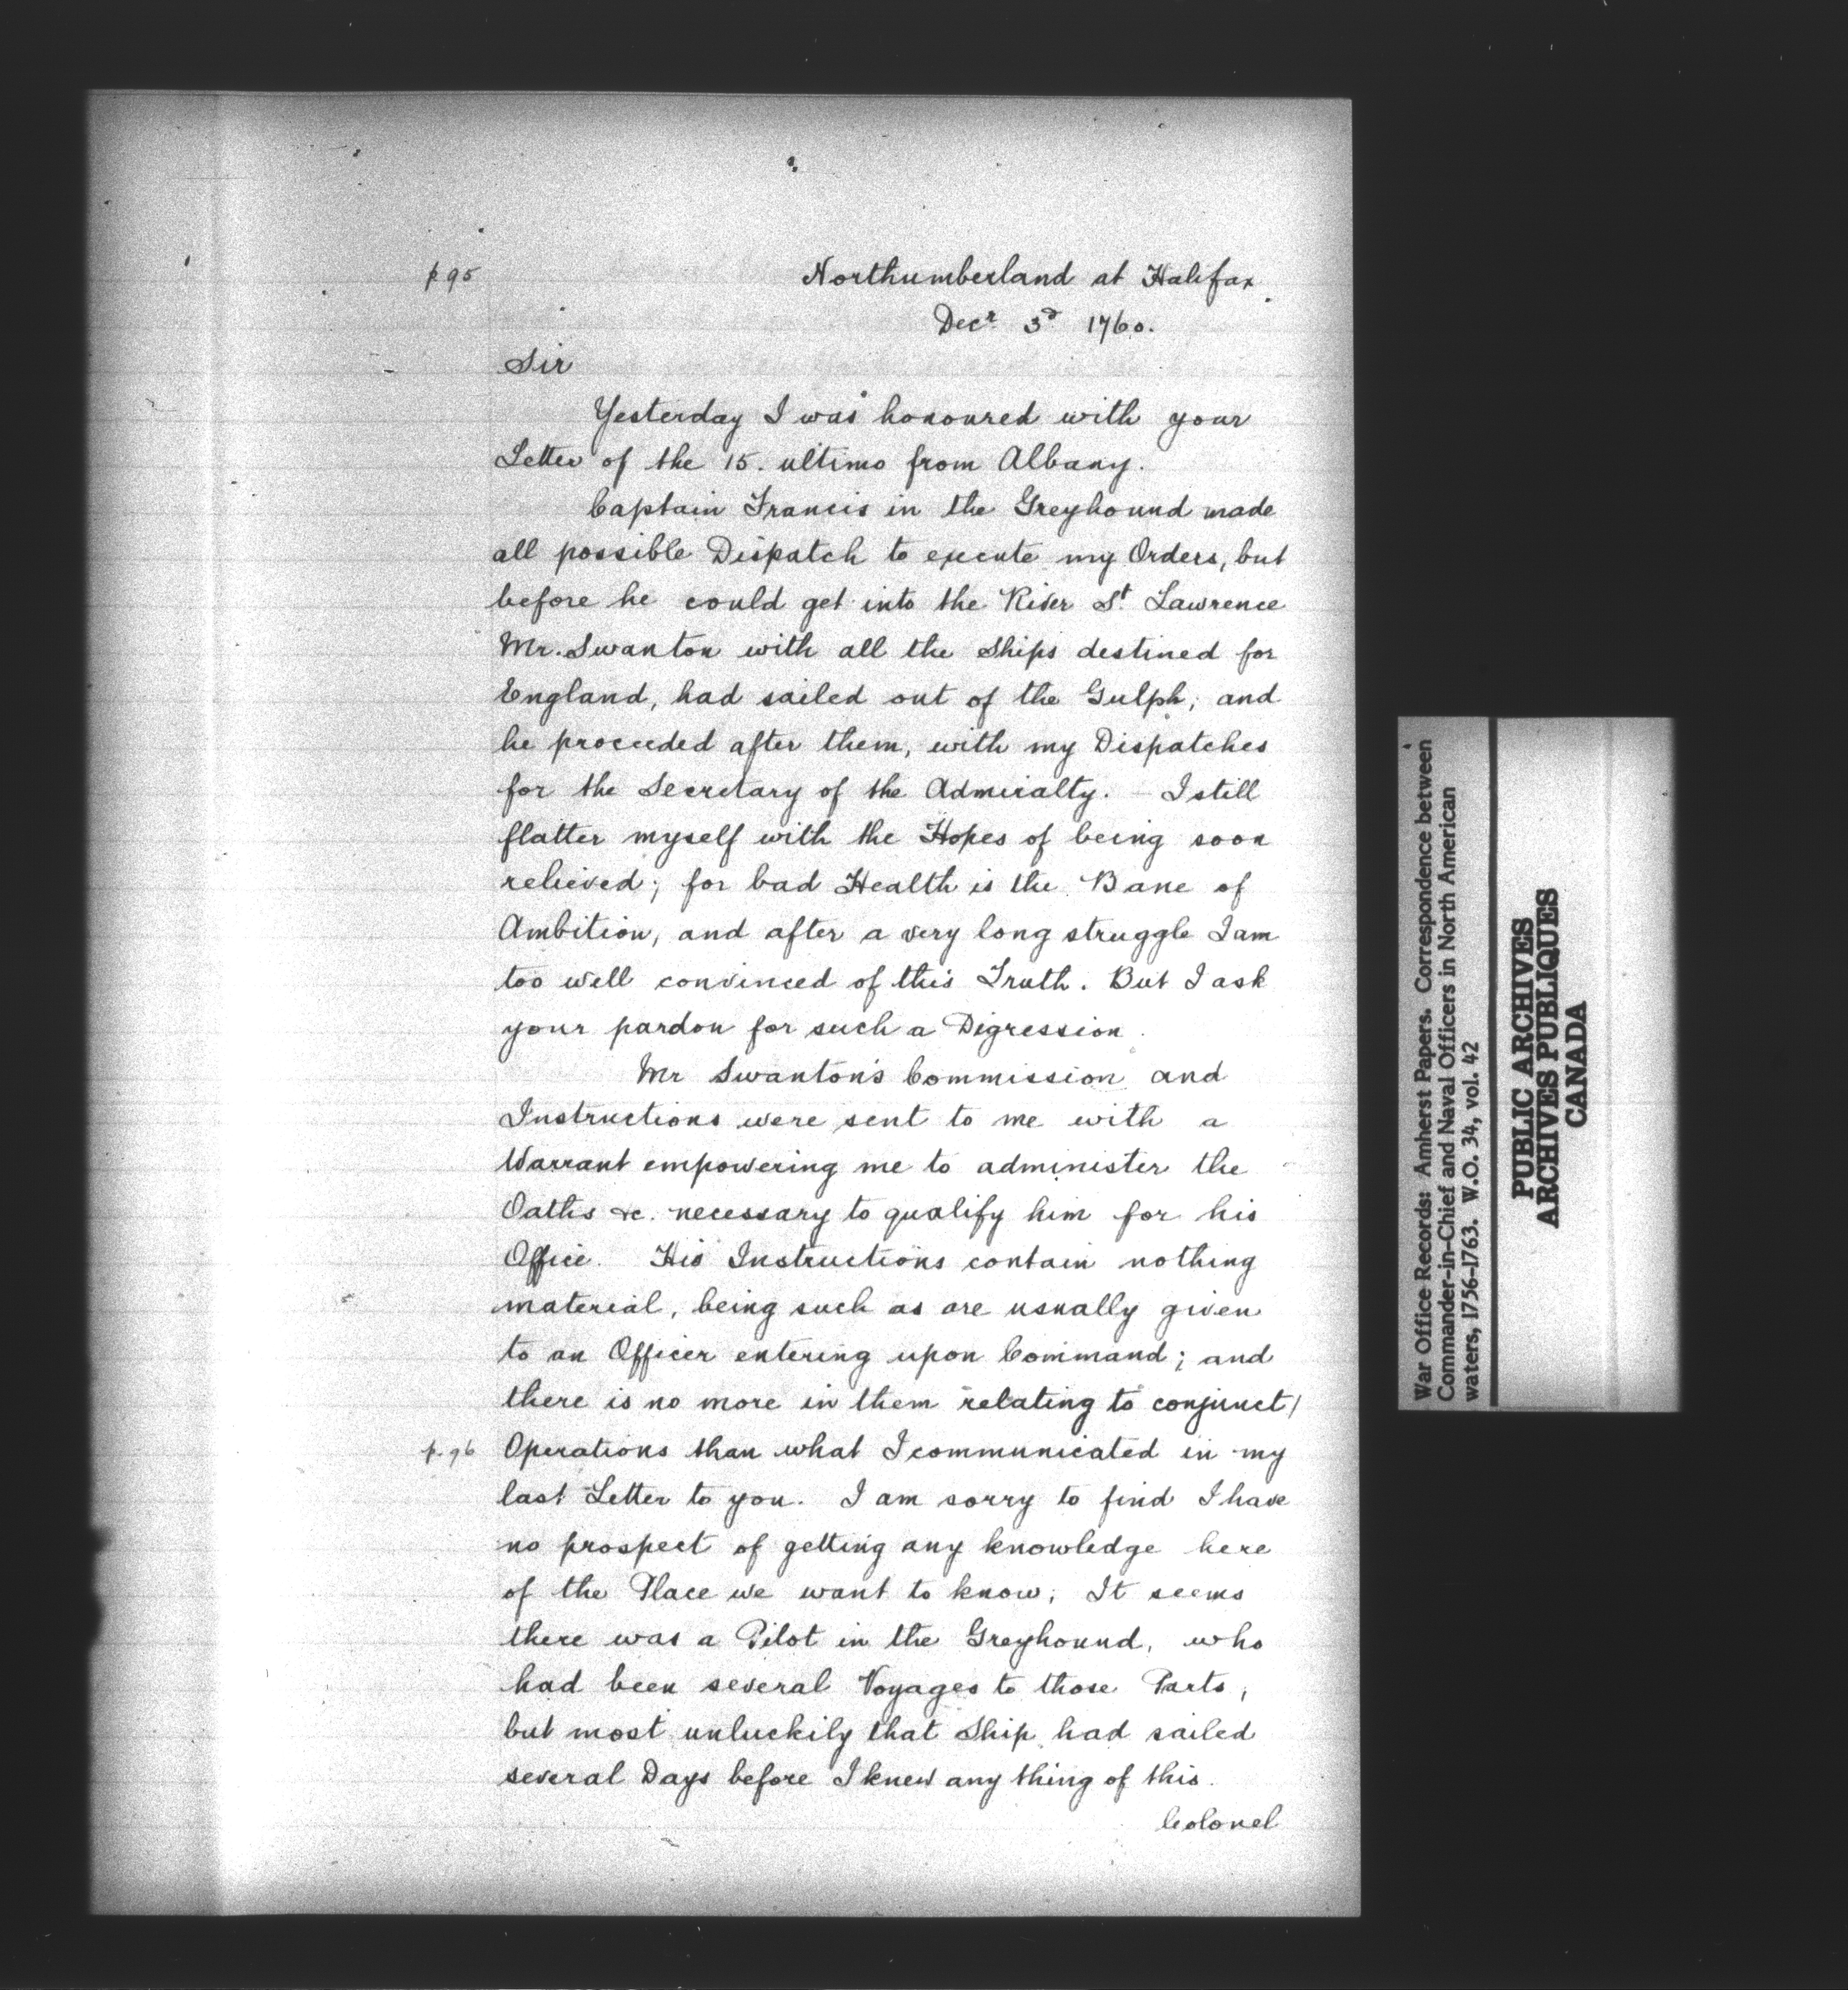 p 95
Northumberland at Halifax
Decr. 3d 1760.
Sir
Yesterday I was honoured with your
Letter of the 15. ultimo from Albany.
Captain Francis in the Greyhound made
all possible Dispatch to execute my Orders, but
before he could get into the River St Lawrence
Mr. Swanton with all the Ships destined for
England, had sailed out of the Gulph; and
he proceeded after them, with my Dispatches
for the Secretary of the Admiralty. – I still
flatter myself with the Hopes of being soon
relieved; for bad Health is the Bane of
Ambition, and after a very long struggle I am
too well convinced of this Truth. But I ask
your pardon for such a Digression.
Mr Swanton's Commission and
Instructions were sent to me with a
Warrant empowering me to administer the
Oaths &c. necessary to qualify him for his
Office. His Instructions contain nothing
material, being such as are usually given
to an Officer entering upon Command; and
there is no more in them relating to conjunct/
p. 96
Operations than what I communicated in my
last Letter to you. I am sorry to find I have
no prospect of getting any knowledge here
of the Place we want to know; It seems
there was a Pilot in the Greyhound, who
had been several Voyages to those Parts,
but most unluckily that Ship had sailed
several Days before I knew any thing of this.
Colonel
War Office Records: Amherst Papers. Correspondence between
Commander-in-Chief and Naval Officers in North American
waters, 1756-1763. W.O. 34, vol. 42
PUBLIC ARCHIVES
ARCHIVES PUBLIQUES
CANADA